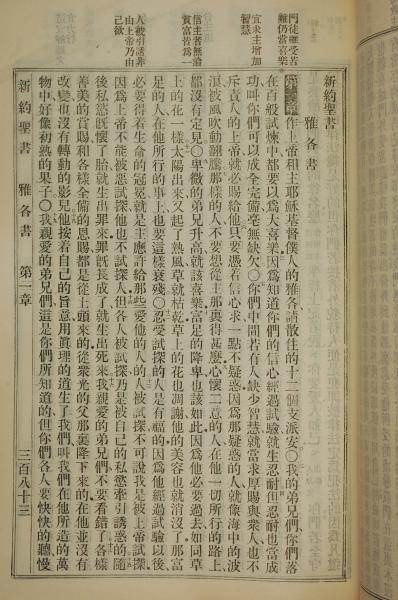 門徒雖受苦
難仍當喜樂
宜求主增加
智慧
信主者無論
貧富皆爲一
人被引誘非
由上帝乃由
己慾
新約聖書
雅各書
作上帝和主耶穌基督僕人的雅各請散住的十二個支派安〇我的弟兄們你們落
在百般試煉中都要以爲大喜樂因爲知道你們的信心經過試驗就生忍耐但忍耐也當成
功叫你們可以成全完備毫無缺欠〇你們中間若有人缺少智慧就當求厚賜與衆人也不
斥責人的上帝就必賜給他只要憑着信心求一點不疑惑因爲那疑惑的人就像海中的波
浪被風吹動翻騰那樣的人不要想從主那裏得甚麼心懷二意的人在他一切所行的路上
都沒有定見〇卑微的弟兄升高就該喜樂富足的降卑也該如此因爲他必要過去如同草
上的花一樣太陽出來又起了熱風草就枯乾草上的花也凋謝他的美容也就消沒了那富
足的人在他所行的事上也要這樣衰殘〇忍受試探的人是有福的因爲他經過試驗以後
必要得着生命的冠冕就是主應許給那些愛他的人的人被試探不可說我是被上帝試探
因爲上帝不能被惡試探他也不試探人但各人被試探乃是被自己的私慾牽引誘惑的隨
後私慾旣懷了胎就生出罪來罪旣長成了就生出死來我親愛的弟兄們不要看錯了各樣
善美的賞賜和各樣全備的恩賜都是從上頭來的從衆光的父那裏降下來的在他並沒有
改變也沒有轉動的影兒他按着自己的旨意用眞理的道生了我們叫我們在他所造的萬
物中好像初熟的果子〇我親愛的弟兄們這是你們所知道的但你們各人要快快的聽慢
新約聖書
雅各書
第一章
三百八十三